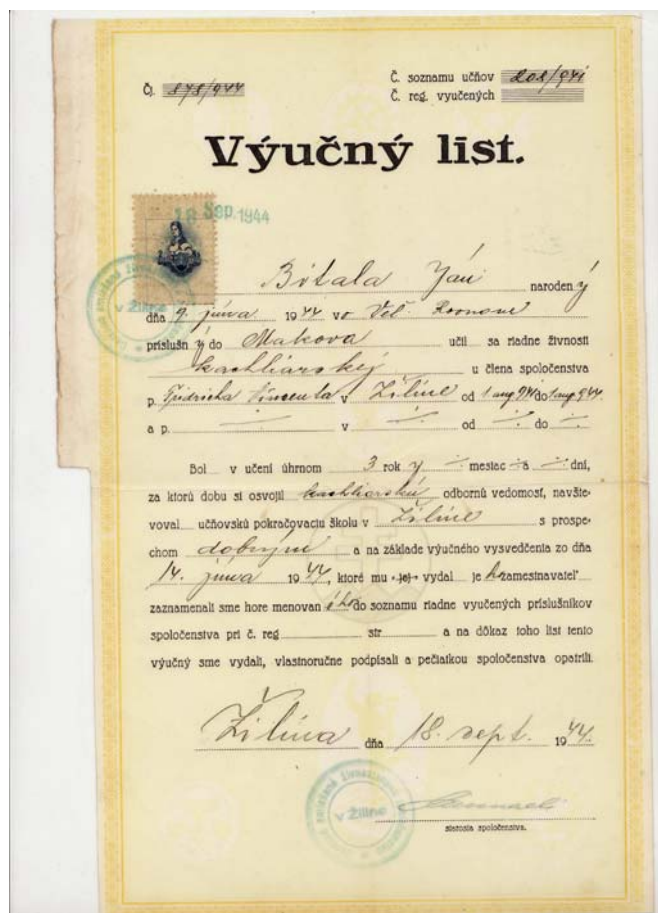 Čj. 878/944
Č. soznamu učňov 202/941
Č. reg. vyučených
Výučný list.
18 Sep. 1944
Bitala Ján narodený
dňa 9. júna 1944 vo Veľ.
príslušný do Makova učil sa riadne živnosti
kachliarskej u člena spoločenstva
p. Fridricha Vincenta v Žiline od 1 aug. 941 do 1 aug. 944.
a p. ./. v ./. od ./. do ./.
Bol v učení úhrnom 3 rok y ./. mesiac ./. a ./. dní,
za ktorú dobu si osvojil kachliarskú odbornú vedomosť, navšte-
voval učňovskú pokračovaciu školu v Žilíne s prospe-
chom dobrým a na základe výučného vysvedčenia zo dňa
14. júna 1944, ktoré mu jej vydal je ho zamestnavateľ
zaznamenali sme hore menovan ého do soznamu riadne vyučených príslušníkov
spoločenstva pri č. reg str a na dôkaz toho list tento
výučný sme vydali, vlastnoručne podpísali a pečiatkou spoločenstva opatrili.
Žilina dňa 18. sept. 1944.
v Žiline
starosta spoločenstva.